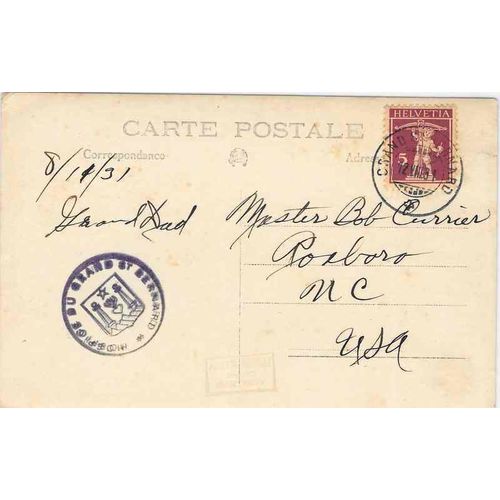 HELVETIA
5
CARTE POSTALE
Correspondance
Adresse
8/14/31
Grand Dad
Master Bob Currier
Roxboro
NC
USA
HOSPICE DU GRAND ST BERNARD